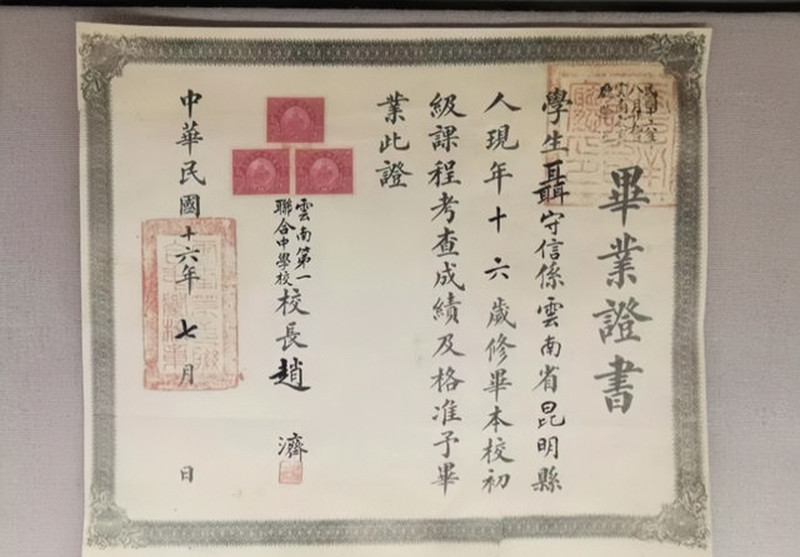 畢業證書
學生聶守信係雲南省昆明縣
人現年十六歲修畢本校初
級課程考查成績及格准予畢
業此證
雲南第一
聯合中學校
校長趙濟
中華民國十六年七月 日